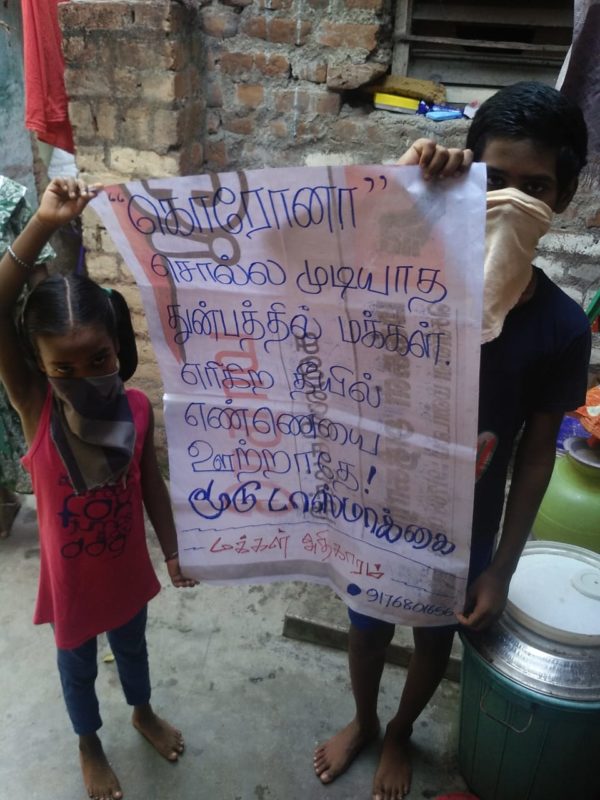 "கொரோனா"
சொல்ல முடியாத
துன்பத்தில் மக்கள்.
எரிகிற தீயில்
எண்ணெயை
ஊற்றாதே!
மூடு டாஸ்மாக்கை
மக்கள் அதிகாரம்
9176801656